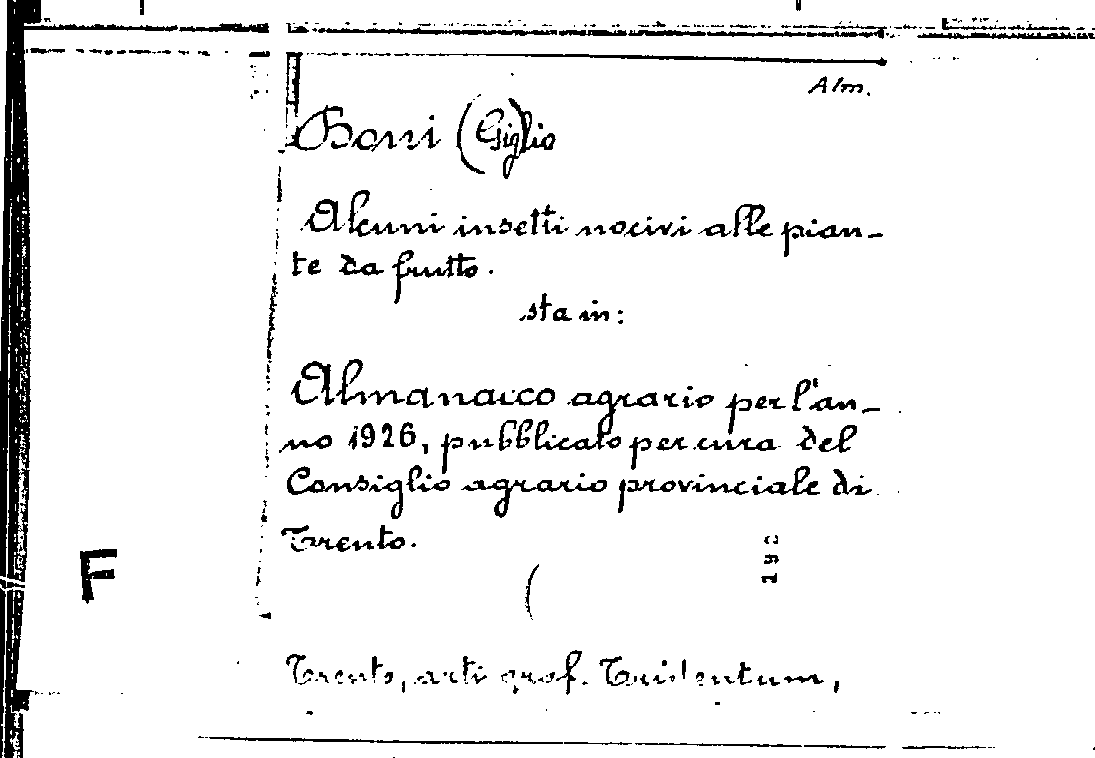 Alm.
Boni (Giglio
Alcuni insetti nocivi alle pian-
te da frutto.
sta in:
Almanacco agrario per l'an-
no 1926, pubblicato per cura del
Consiglio agrario provinciale di
Trento.
F
Trento, arti graf. Tridentum,